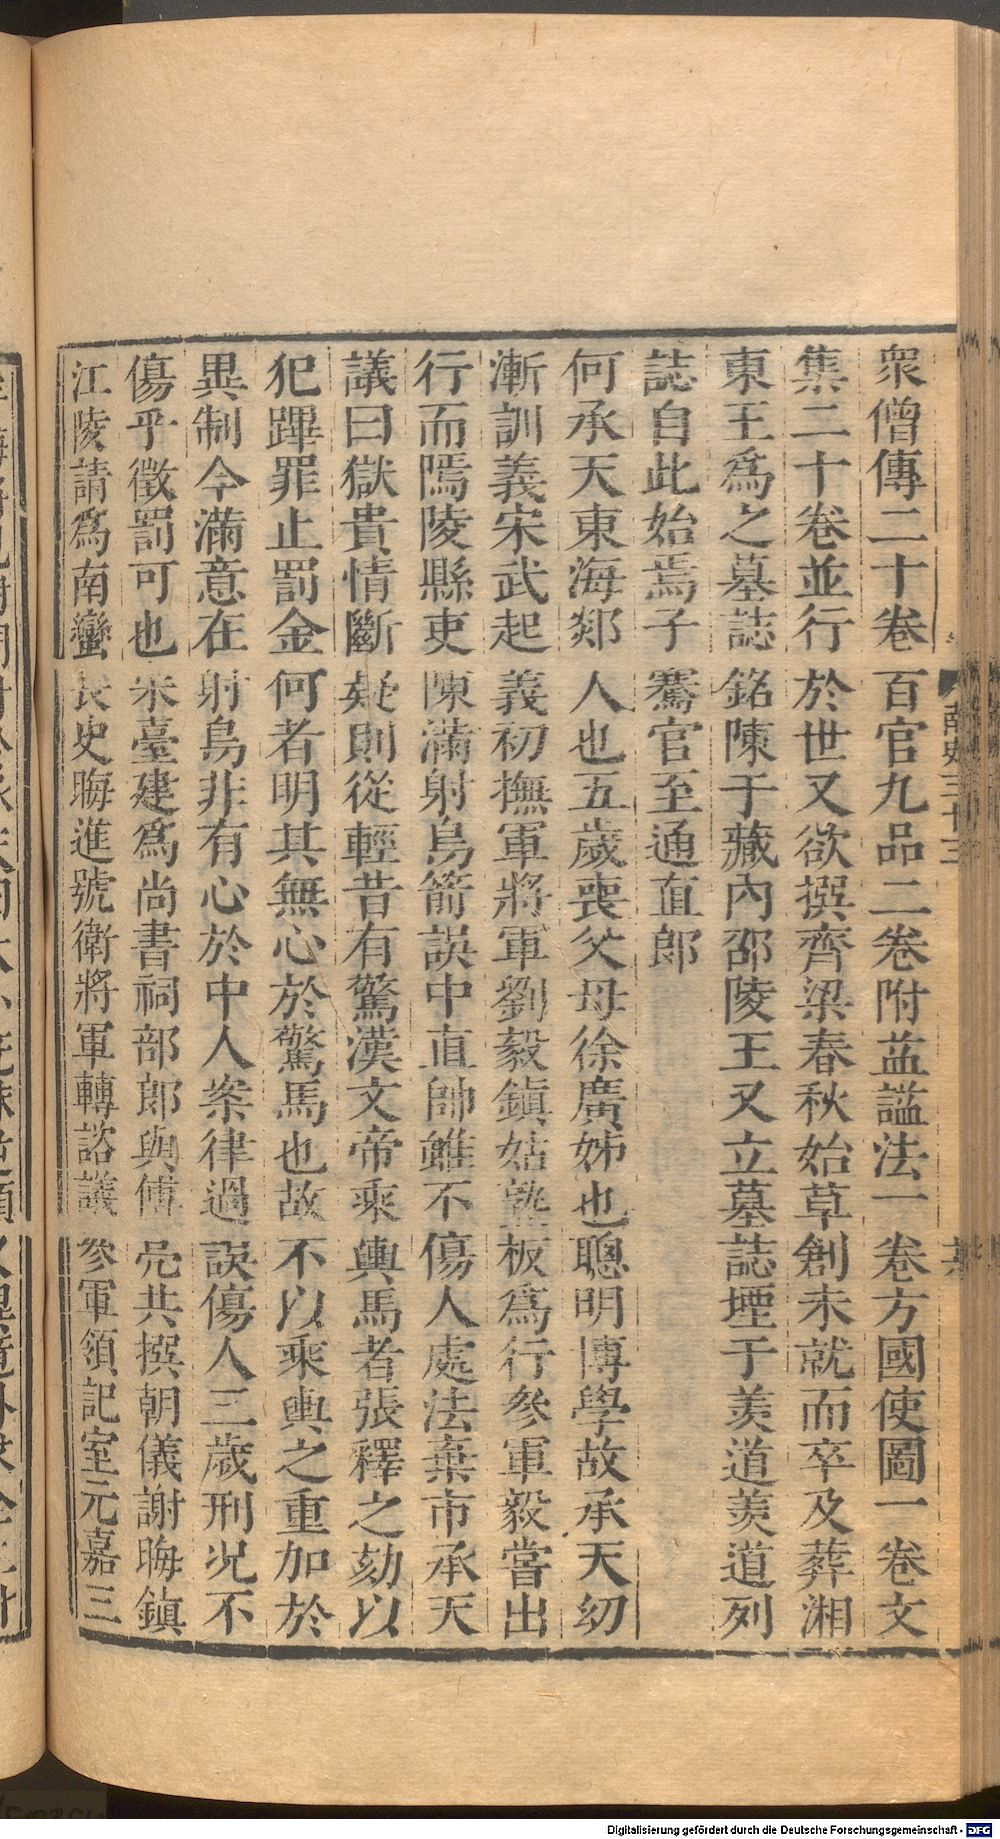 衆僧傳二十卷百官九品二卷附益諡法一卷方國使圖一卷文
集二十卷並行於世又欲撰齊梁春秋始草創未就而卒及葬湘
東王爲之墓誌銘陳于藏內邵陵王又立墓誌堙于羨道羨道列
誌自此始焉子騫官至通直郎
何承天東海郯人也五歲喪父母徐廣姊也聰明博學故承天幼
漸訓義宋武起義初撫軍將軍劉毅鎮姑孰板爲行參軍毅嘗出
行而隖陵縣吏陳滿射鳥箭誤中直帥雖不傷人處法棄市承天
議曰獄貴情斷疑則從輕昔有驚漢文帝乘輿馬者張釋之劾以
犯蹕罪止罰金何者明其無心於驚馬也故不以乘輿之重加於
異制今滿意在射鳥非有心於中人案律過誤傷人三歲刑况不
傷乎徵罰可也宋臺建爲尚書祠部郎與傅亮共撰朝儀謝晦鎮
江陵請爲南蠻長史晦進號衛將軍轉諮議參軍領記室元嘉三
南史三十三
Digitalisierung gefördert durch die Deutsche Forschungsgemeinschaft - DFG